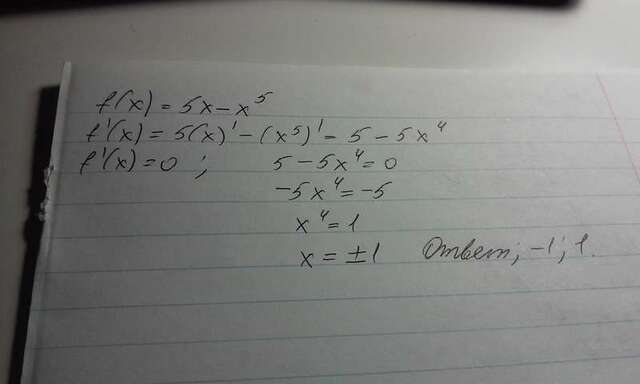 f(x) = 5x - x⁵
f'(x) = 5(x)' - (x⁵)' = 5 - 5x⁴
f'(x) = 0 ; 5 - 5x⁴ = 0
-5x⁴ = -5
x⁴ = 1
x = ±1 Ответ; -1; 1.